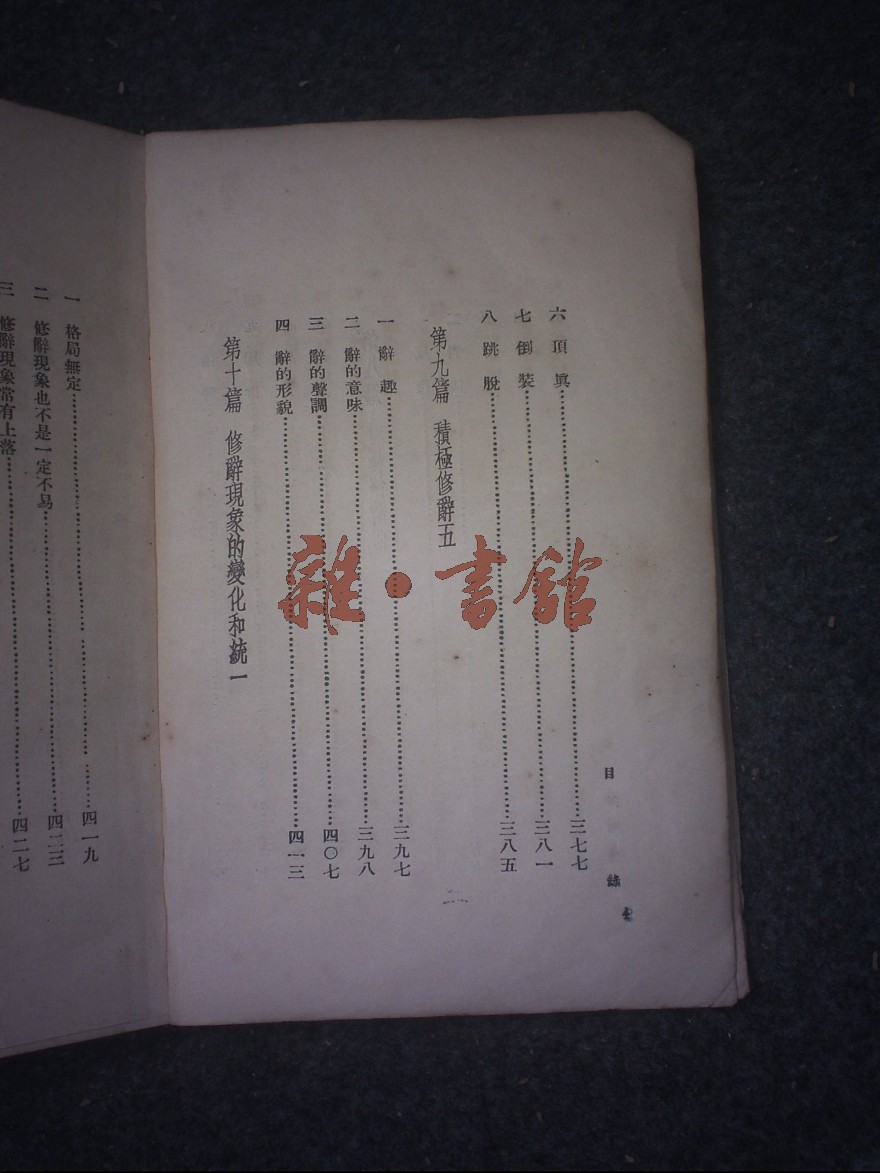 六 頂 眞 三七七
七 倒 裝 三八一
八 跳 脫 三八五
第九篇 積極修辭五
一 辭 趣 三九七
二 辭的意味 三九八
三 辭的聲調 四〇七
四 辭的形貌 四一三
第十篇 修辭現象的變化和統一
目 錄
一 格局無定 四一九
二 修辭現象也不是一定不易 四二三
三 修辭現象常有上落 四二七
雜·書館